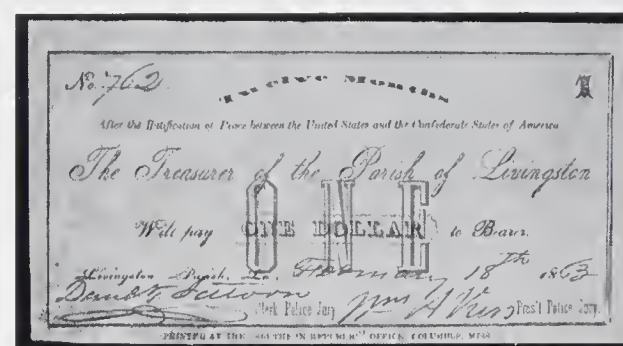 No. 762
Twelve Months
1
After the Ratification of Peace between the United States and the Confederate States of America
The Treasurer of the Parish of Livingston
Will pay ONE DOLLAR to Bearer.
ONE
Livingston Parish, La. 18th 1863
Clerk Police Jury Wm Pres't Police Jury.
PRINTED AT THE "SOUTHERN REPUBLIC" OFFICE, COLUMBUS, MISS